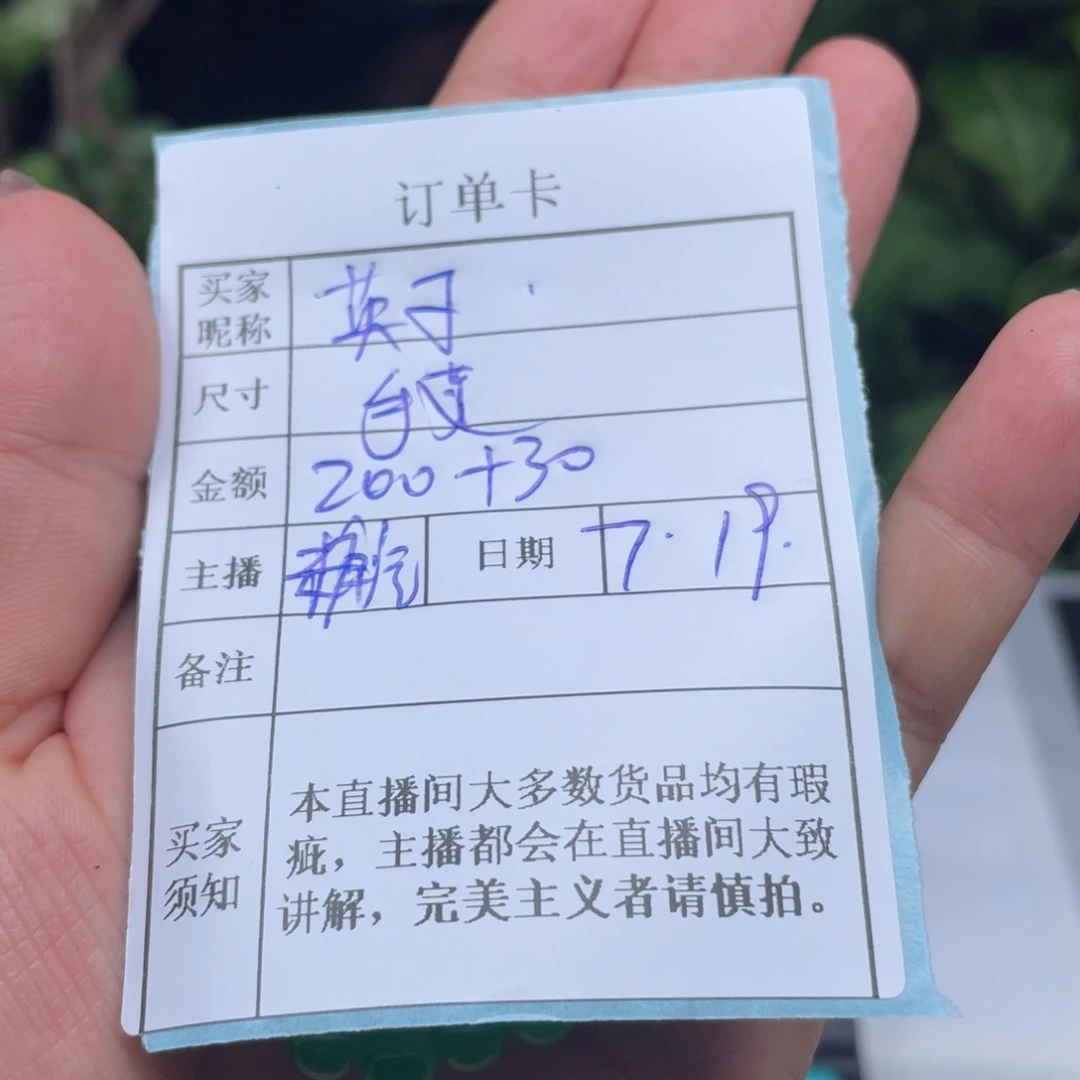 订单卡
买家
昵称
英子
尺寸
金额
200+30
主播
日期
7.19.
备注
买家
须知
本直播间大多数货品均有瑕
疵，主播都会在直播间大致
讲解，完美主义者请慎拍。